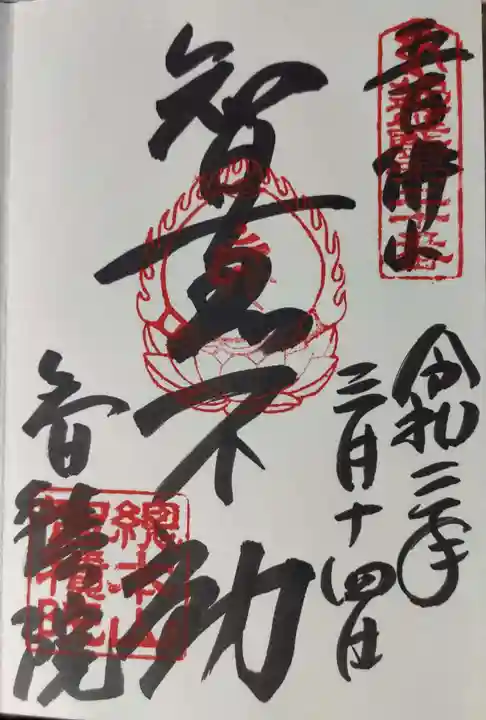 五百佛山
令和二年
三月十四日
智恵不動
智積院
總本山
智積院